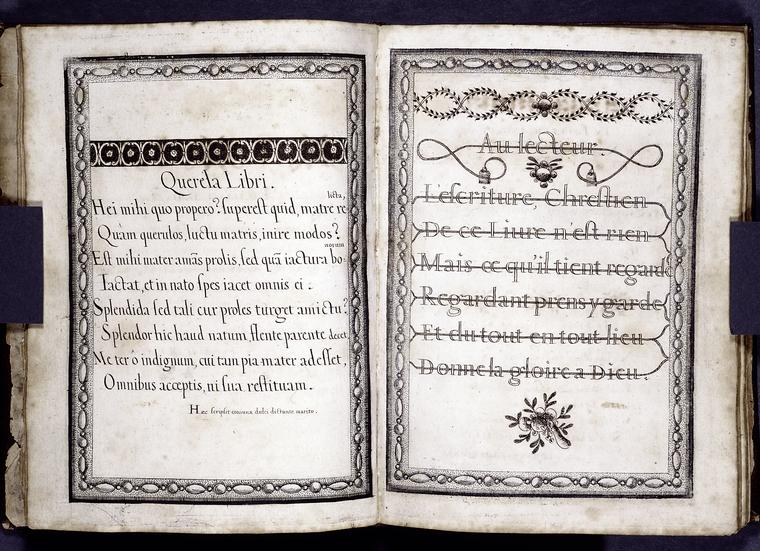 Querela Libri.
Hei mihi quo propero? superest quid, matre relicta,
Quàm querulos, luctu matris, inire modos?
Est mihi mater amãs prolis, sed quã iactura bonorum
Iactat, et in nato spes iacet omnis ei.
Splendida sed tali cur proles turget amictu?
Splendor hic haud natum, flente parente decet.
Me ter ô indignum, cui tam pia mater adesset,
Omnibus acceptis, ni sua restituam.
Hæc scripsit coniunx dulci dictante marito.
Au lecteur.
L'escriture, Chrestien
De ce Liure n'est rien
Mais ce qu'il tient regarde
Regardant prens y garde
Et du tout en tout lieu
Donne la gloire a Dieu.